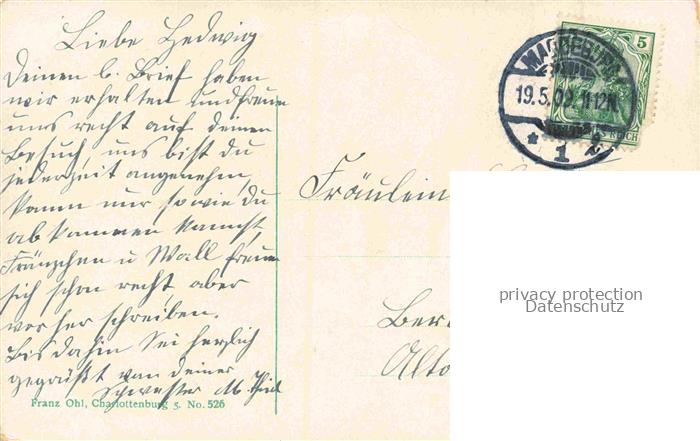 Liebe Hedwig
Deinen l. Brief haben
wir erhalten und freuen
uns recht auf deinen
Besuch, uns bist du
jederzeit angenehm,
kann nur so wie du
abkommen kannst,
Fränzchen u Wall freuen
sich schon recht aber
vorher schreiben.
Bis dahin Sei herzlich
gegrüßt von deiner
Schwester M.
Franz Ohl, Charlottenburg 5. No. 526
5
MAGDEBURG
19.5.09. 11-12N.
* 1 z
REICH
Fräulein
Ber
Alto
privacy protection
Datenschutz